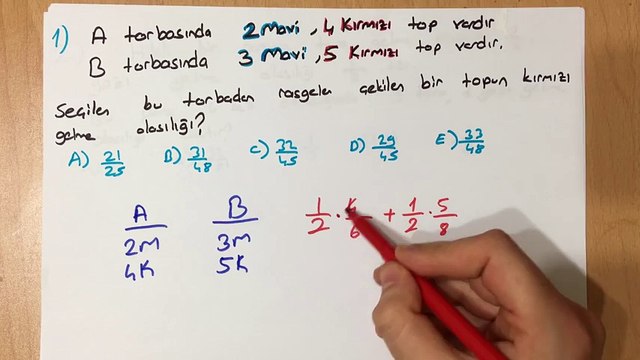 1) A torbasında 2 Mavi, 4 Kırmızı top vardır
B torbasında 3 Mavi, 5 Kırmızı top vardır.
Seçilen bu torbadan rasgele çekilen bir topun kırmızı
gelme olasılığı?
A) 21/25 B) 31/48 C) 32/45 D) 29/45 E) 33/48
A B
2M 3M
4K 5K
1/2 · 4/6 + 1/2 · 5/8